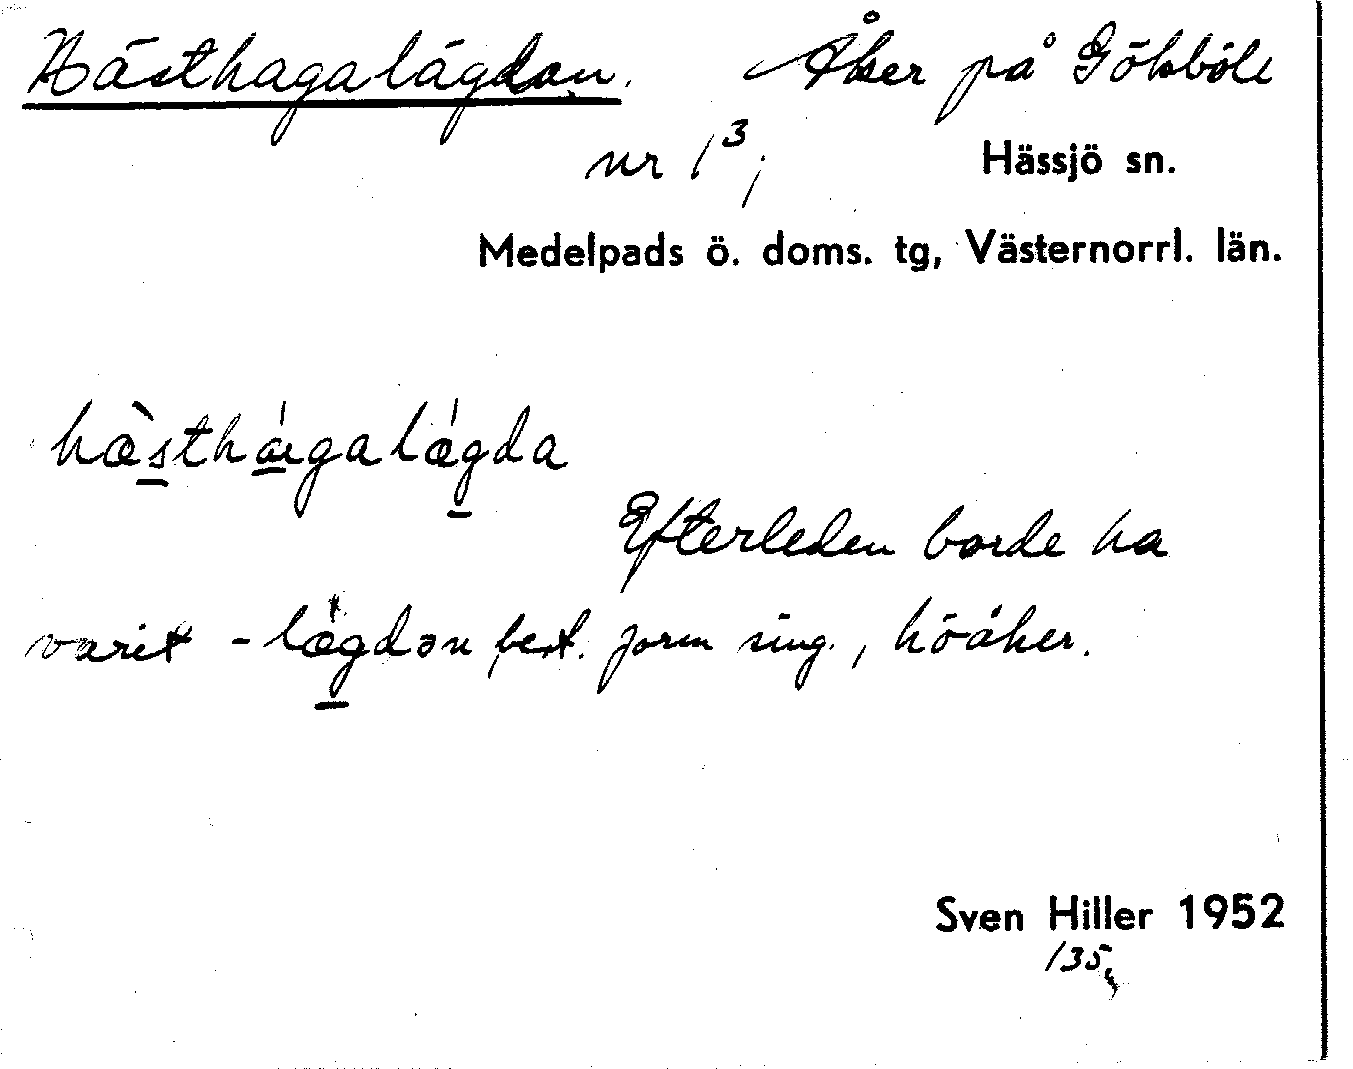 Hästhagalägdan. Åker på Gökböle
nr 1³; Hässjö sn.
Medelpads ö. doms. tg, Västernorrl. län.
hæ̀sthága lǽgda
Efterleden borde ha
varit -lǽgdən best. form sing., höåker.
Sven Hiller 1952
135.